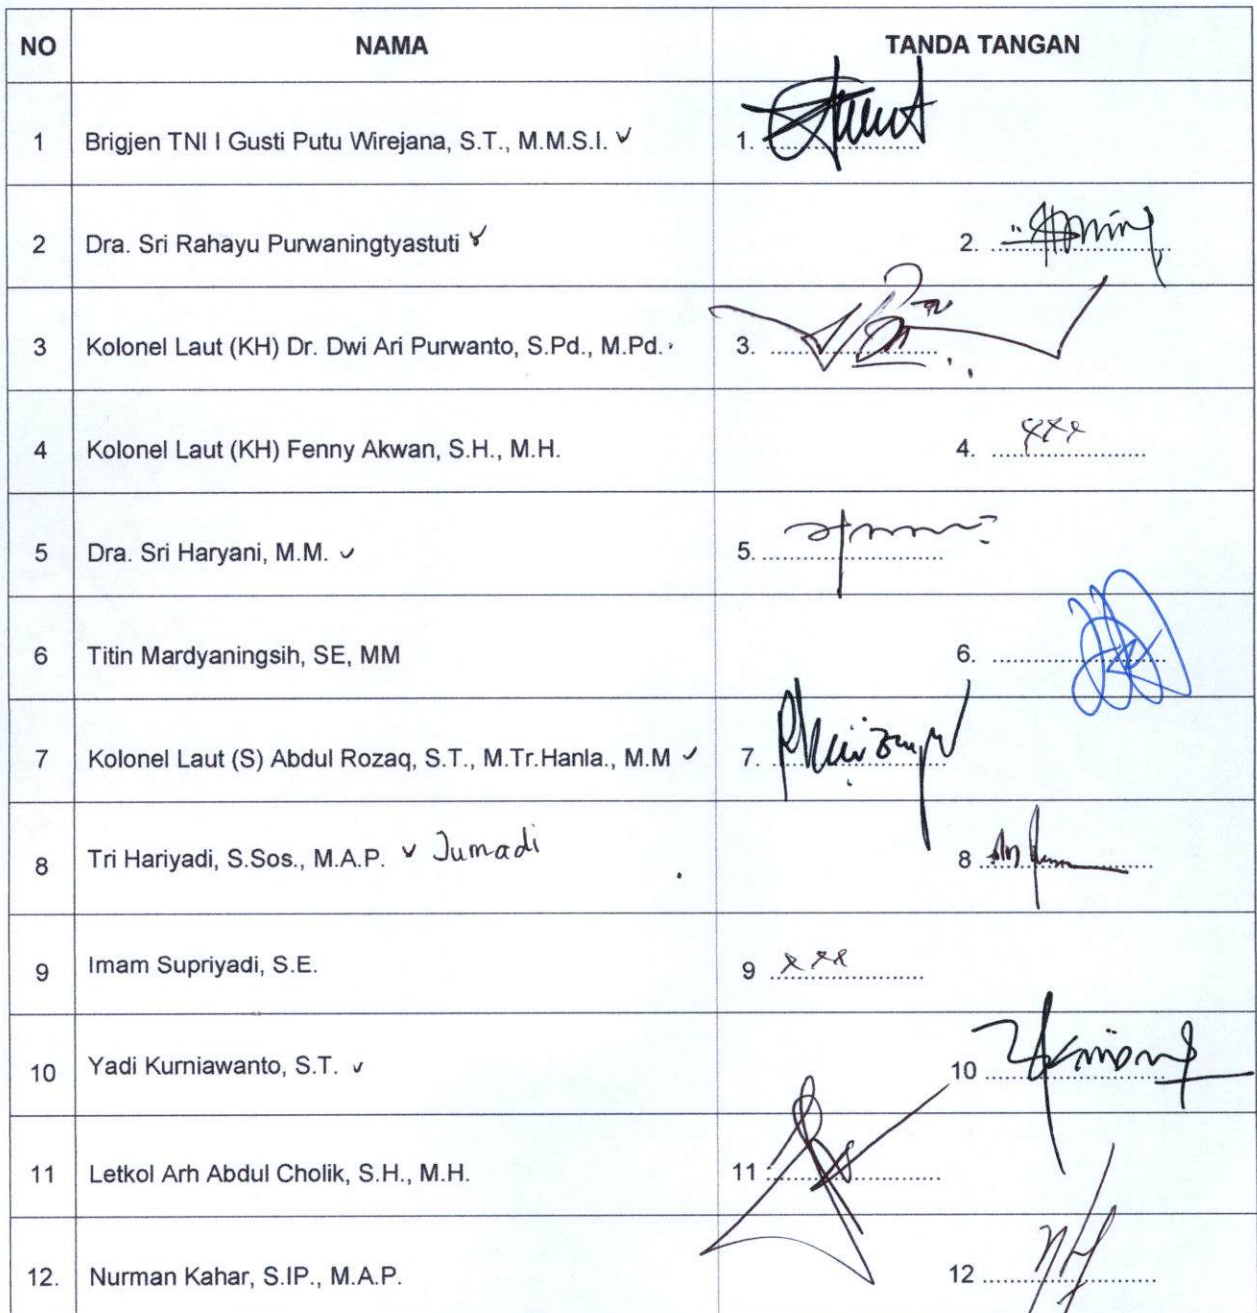 NO NAMA TANDA TANGAN
1 Brigjen TNI I Gusti Putu Wirejana, S.T., M.M.S.I. 1. ....................
2 Dra. Sri Rahayu Purwaningtyastuti 2. ....................
3 Kolonel Laut (KH) Dr. Dwi Ari Purwanto, S.Pd., M.Pd. 3. ....................
4 Kolonel Laut (KH) Fenny Akwan, S.H., M.H. 4. xxx
5 Dra. Sri Haryani, M.M. 5. ....................
6 Titin Mardyaningsih, SE, MM 6. ....................
7 Kolonel Laut (S) Abdul Rozaq, S.T., M.Tr.Hanla., M.M 7. ....................
8 Tri Hariyadi, S.Sos., M.A.P. Jumadi 8 ....................
9 Imam Supriyadi, S.E. 9 xxx
10 Yadi Kurniawanto, S.T. 10 ....................
11 Letkol Arh Abdul Cholik, S.H., M.H. 11 ....................
12. Nurman Kahar, S.IP., M.A.P. 12 ....................